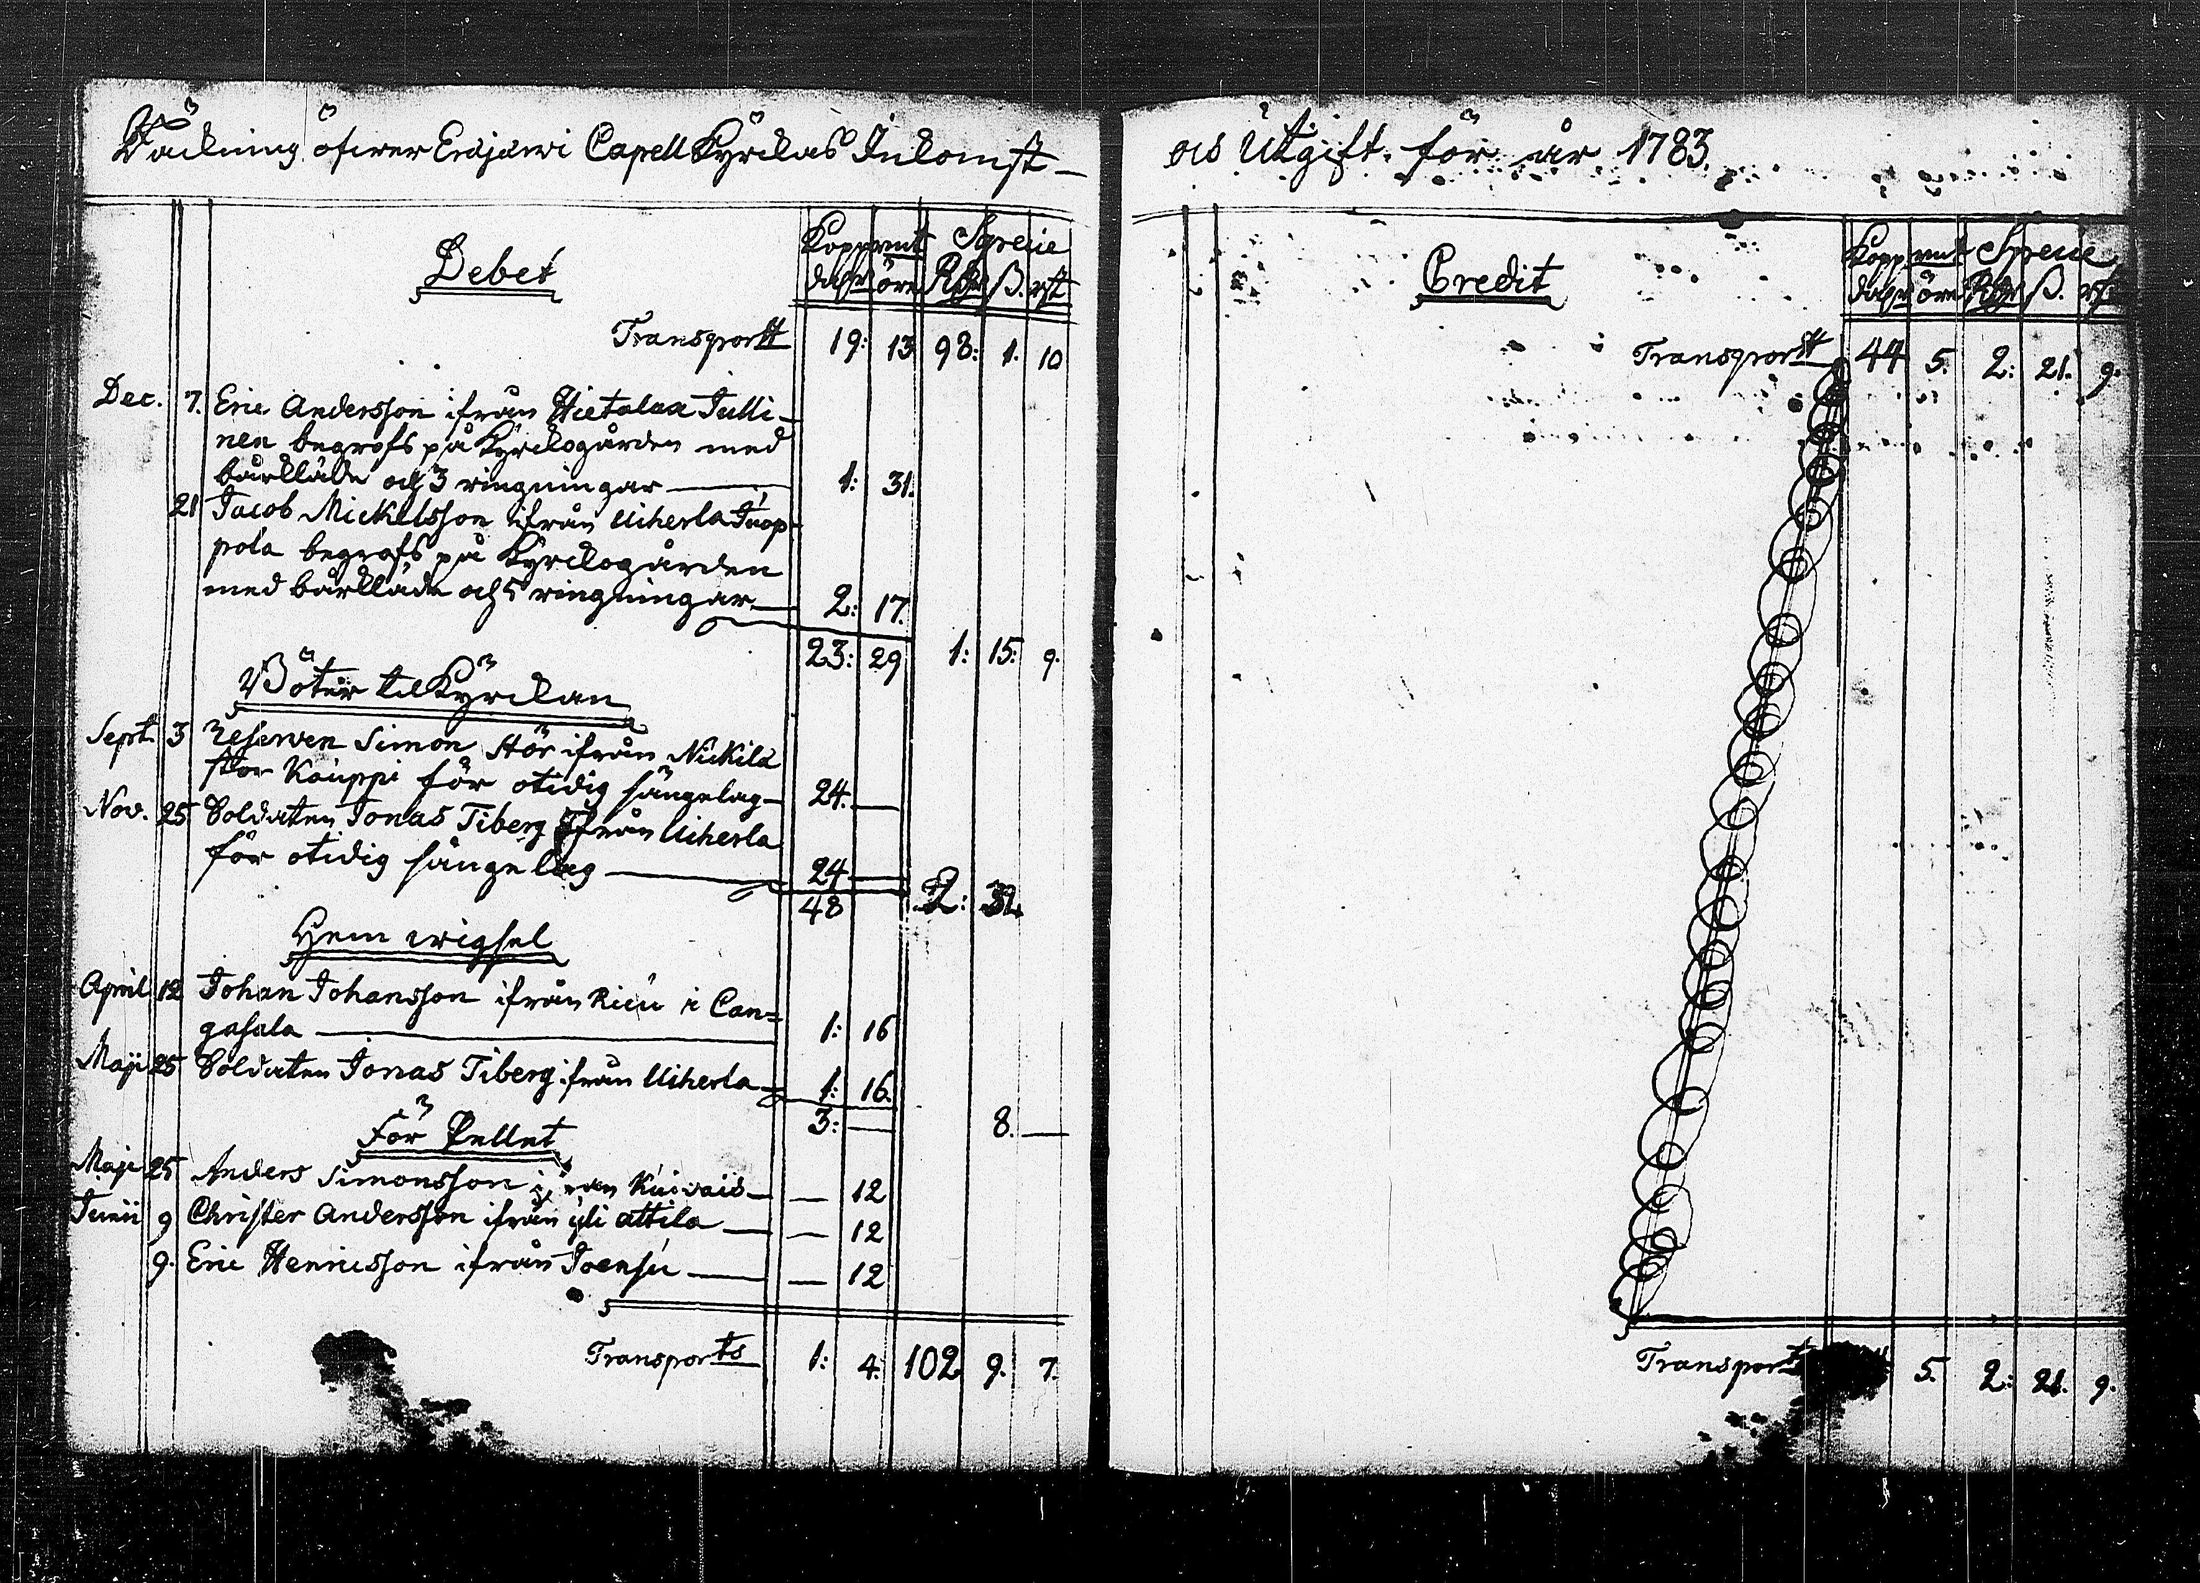 Räckning öfwer Eräjärwi Capell Kÿrckas Inkomst
Debet
Kopp.mt Specie
dahlr öre Rdr ß. rst
Transportt 19: 13 98: 1. 10
Dec. 7. Eric Andersson ifrån Hietalax Tulli-
nen begrofs på Kÿrckogården med
bårkläde och 3 ringningar 1: 31.
21 Jacob Mickelsson ifrån Uiherla Tuop-
pola begrofs på Kÿrckogården
med bårkläde och 5 ringningar 2: 17.
23: 29 1: 15: 9.
Böter til Kÿrckan
Sept. 3 Reserven Simon Stör ifrån Nickilä
stor Kauppi för otidig sängelag 24. —
Nov. 25 Soldaten Jonas Tiberg ifrån Uiherla
för otidig sängelag 24 —
48 2: 32.
Hem wigsel
April 12 Johan Johansson ifrån Ricu i Can=
gasala 1: 16
Maji 25 Soldaten Jonas Tiberg ifrån Uiherla 1: 16.
3: — 8. —
För Pellet
Maji 25 Anders Simonsson ifrån Kuivais — 12
Junii 9 Christer Andersson ifrån ÿli Attila — 12
9. Eric Henricsson ifrån Joensu — 12
Transports 1: 4: 102 9. 7.
och Utgift för år 1783.
Credit
Kopp.mt Specie
dahlr öre Rdr ß. rst
Transportt 44 5: 2: 21. 9.
Transport 5. 2: 21. 9.